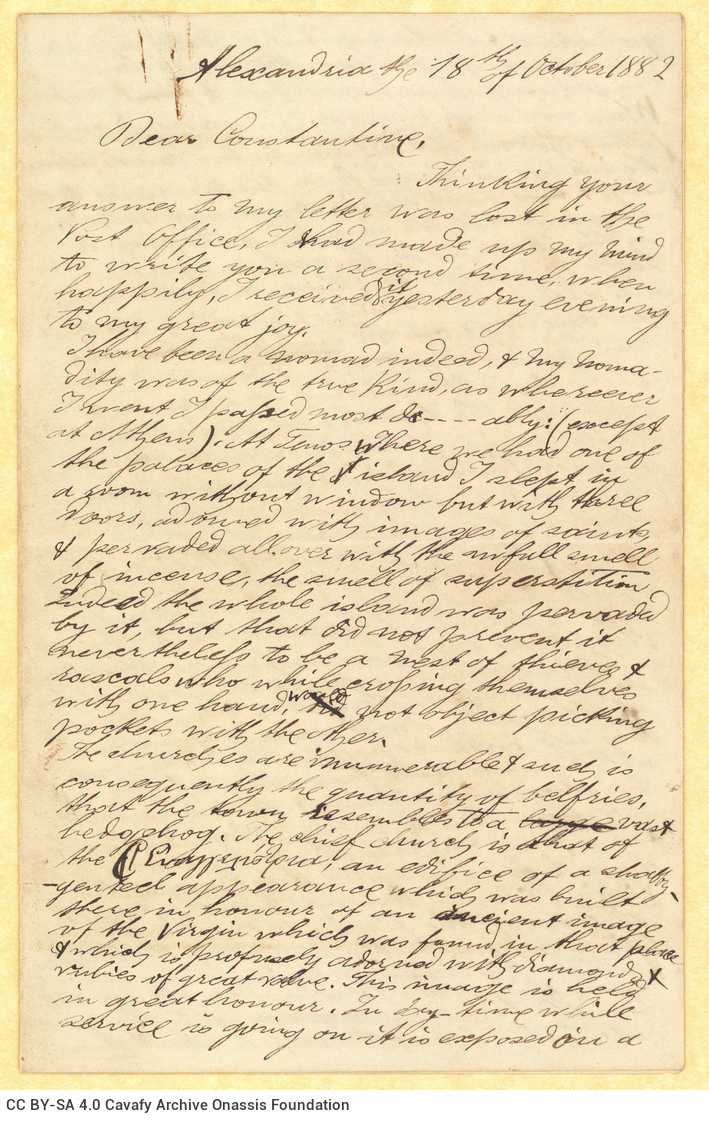 Alexandria the 18th of October 1882
Dear Constantine,
Thinking your
answer to my letter was lost in the
Post Office, I had made up my mind
to write you a second time, when
happily, I received it yesterday evening
to my great joy.
I have been a nomad indeed, & my noma-
dity was of the true kind, as wherever
I went I passed most de----ably: (except
at Athens). At Tinos, where we had one of
the palaces of the island I slept in
a room without window but with three
doors, adorned with images of saints,
& pervaded all over with the awfull smell
of incense, the smell of superstition
Indeed the whole island was pervaded
by it, but that did not prevent it
nevertheless to be a nest of thieves &
rascals who while crossing themselves
with one hand, would not object picking
pockets with the other.
The churches are innumerable & such is
consequently the quantity of belfries,
that the town resembles to a large vast
hedgehog. The chief church is that of
the Ευαγγελίστρια, an edifice of a shabby-
-genteel appearance which was built
there in honour of an ancient image
of the Virgin which was found in that place
& which is profusely adorned with diamonds &
rubies of great value. This image is held
in great honour. In day-time while
service is going on it is exposed in a
CC BY-SA 4.0 Cavafy Archive Onassis Foundation